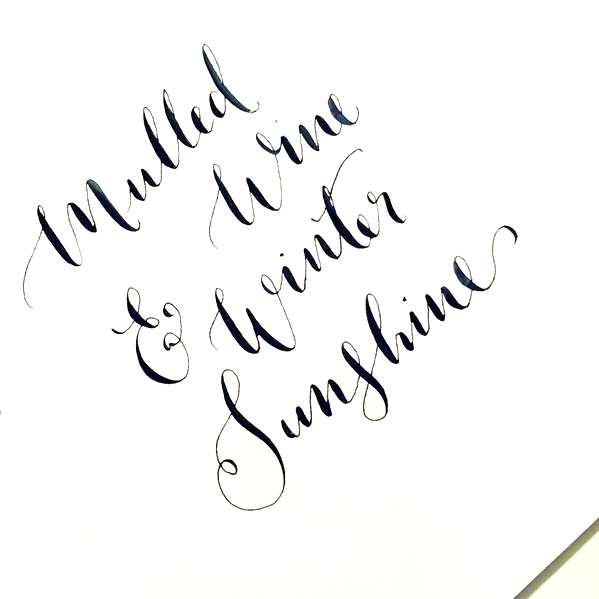 Mulled
Wine
& Winter
Sunshine